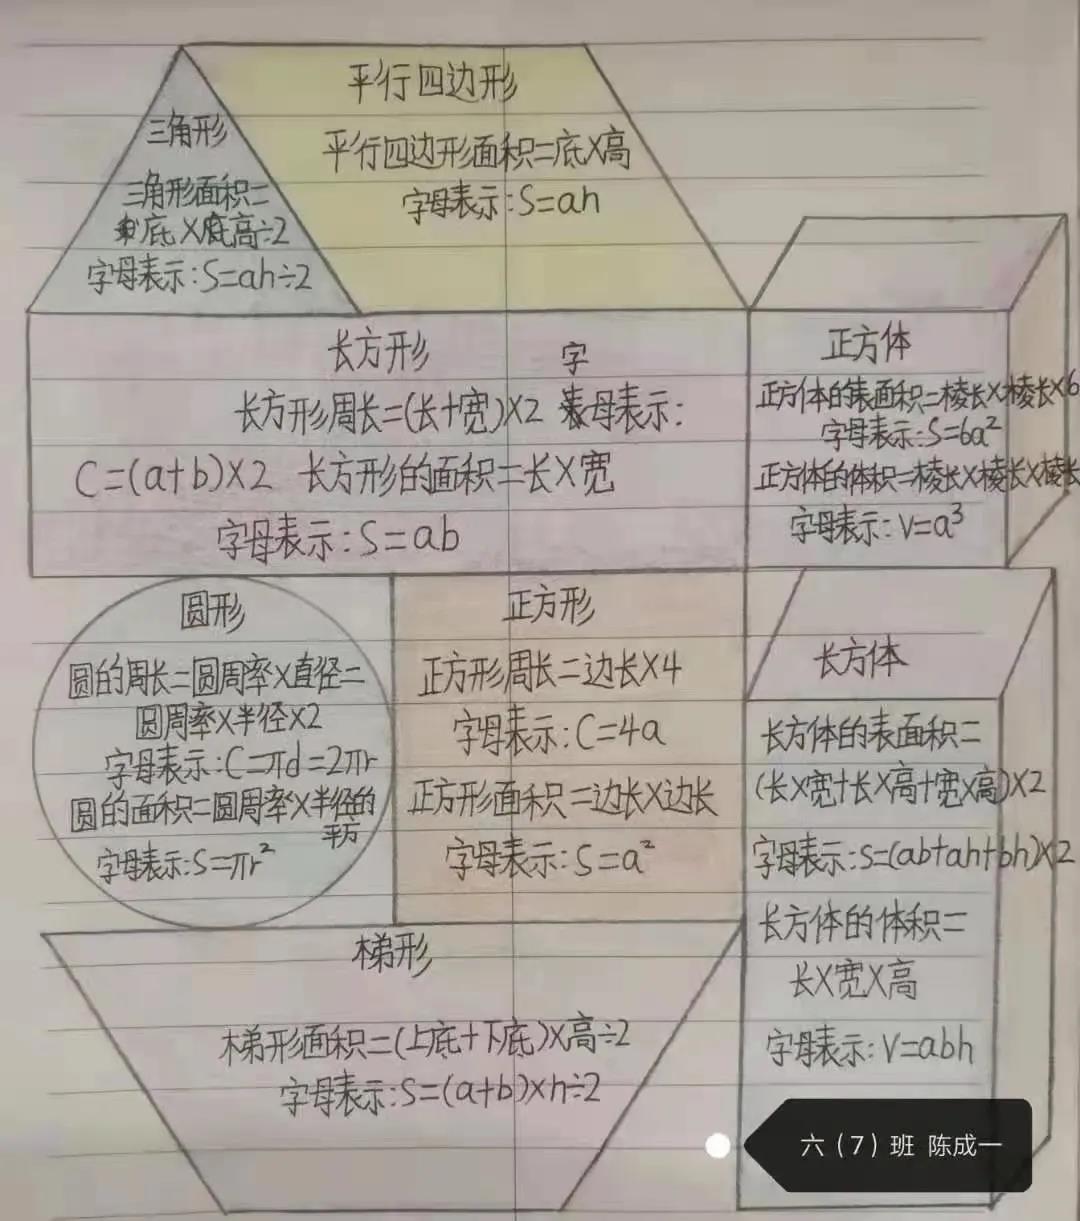 平行四边形
平行四边形面积=底×高
字母表示:S=ah
三角形
三角形面积=
底×高÷2
字母表示:S=ah÷2
长方形
字
长方形周长=(长+宽)×2 母表示:
C=(a+b)×2 长方形的面积=长×宽
字母表示:S=ab
正方体
正方体的表面积=棱长×棱长×6
字母表示:S=6a²
正方体的体积=棱长×棱长×棱长
字母表示:V=a³
圆形
圆的周长=圆周率×直径=
圆周率×半径×2
字母表示:C=πd=2πr
圆的面积=圆周率×半径的
平方
字母表示:S=πr²
正方形
正方形周长=边长×4
字母表示:C=4a
正方形面积=边长×边长
字母表示:S=a²
长方体
长方体的表面积=
(长×宽+长×高+宽×高)×2
字母表示:S=(ab+ah+bh)×2
长方体的体积=
长×宽×高
字母表示:V=abh
梯形
梯形面积=(上底+下底)×高÷2
字母表示:S=(a+b)×h÷2
六(7)班 陈成一